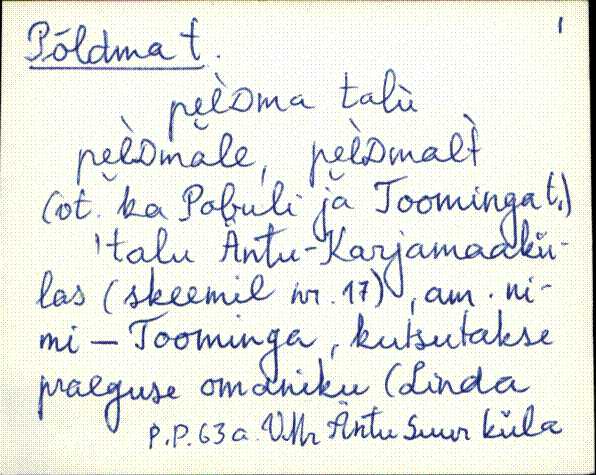 1
Põldma t.
pe̮l̀Dma talù
pe̮l̀Dmăle, pe̮l̀Dmalt̀
(vt. ka Pabuli ja Toominga t.)
'talu Äntu-Karjamaakü-
las (skeemil nr. 17), am. ni-
mi – Toominga, kutsutakse
praeguse omaniku (Linda
P.P. 63 a. VMr Äntu Suur küla